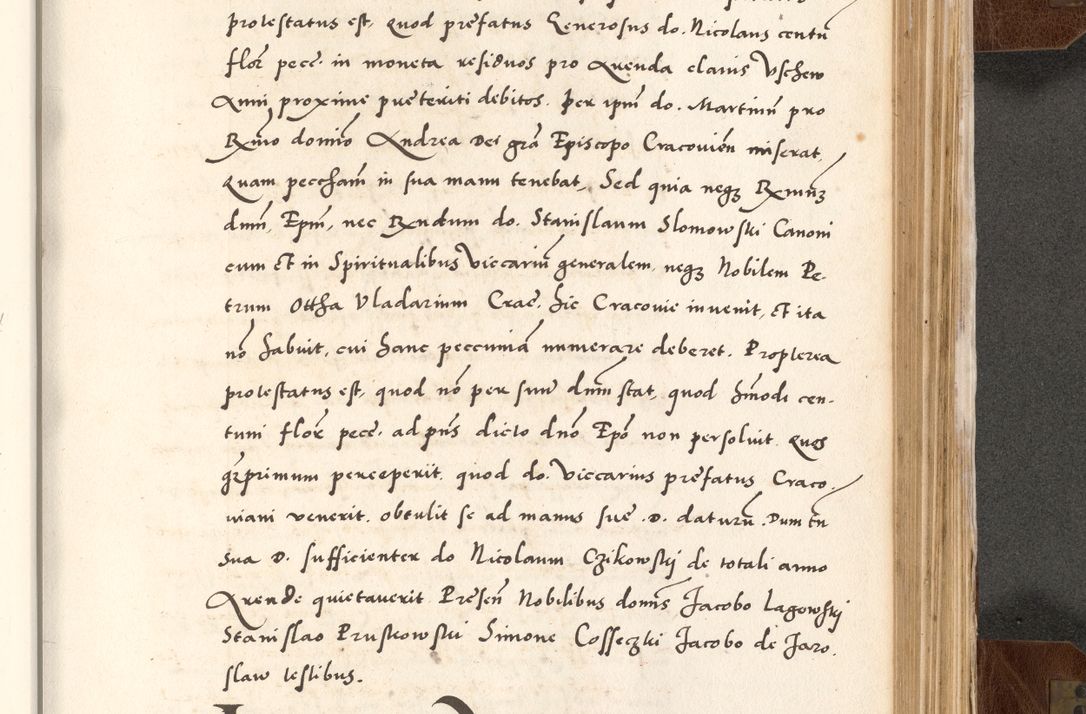 protestatus est, quod prefatus Generosus do. Nicolaus centũ
flor̃ pecc̃. in moneta residuos pro Arenda clavis Uschew
Anni proxime preteriti debitos. per ipm̃ do. Martinũ pro
Rm̃o domĩo Andrea Dei grã Episcopo Cracovieñ miserat.
Quam peccham̃ in sua manu tenebat, Sed quia neqʒ Rmũʒ
dnm̃, Epm̃, nec Rndum do. Stanislaum Slomowski Canoni
cum et in Spiritualibus Viccariũ generalem, neqʒ Nobilem Pe-
trum Ottha Vladarium Crac̃. hic Cracovie invenit, et ita
nõ habuit, cui hanc peccuniã numerare deberet. Propterea
protestatus est, quod nõ per suũ dnm̃ stat, quod hm̃odi cen-
tum flor̃ pecc̃. ad pñs dicto dnõ Epõ non persolvit. Quos
qʒprimum perceperit, quod do. Viccarius prefatus Craco-
viam venerit, obtulit se ad manus sue .D. daturũ. Dum tñ
sua D. sufficienter do Nicolaum Czikowskij de totali anno
Arende quietaverit Preseñ Nobilibus domĩs Jacobo Lagowskij
Stanislao Pruskowskij Simone Cosseczki Jacobo de Jaro-
slaw testibus.